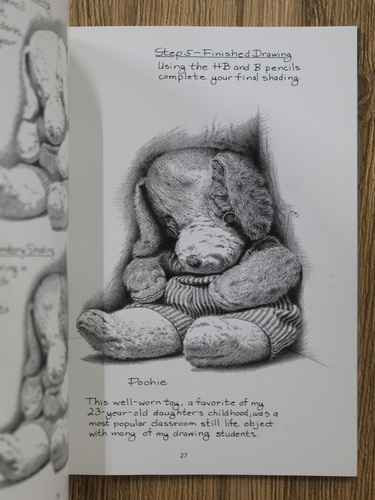 Step 5-Finished Drawing
Using the HB and B pencils
complete your final shading.
Poohie
This well-worn toy, a favorite of my
23-year-old daughter's childhood, was a
most popular classroom still life object
with many of my drawing students.
27